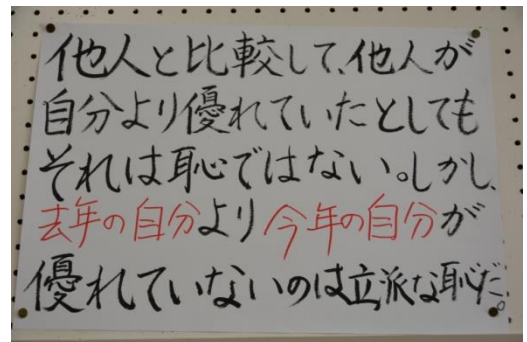 他人と比較して、他人が
自分より優れていたとしても
それは恥ではない。しかし、
去年の自分より今年の自分が
優れていないのは立派な恥だ。